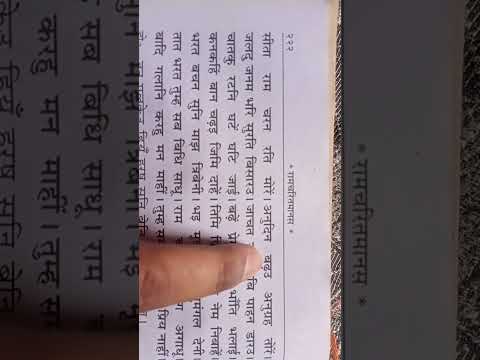 २२२ * रामचरितमानस *
सीता राम चरन रति मोरें। अनुदिन बढ़उ अनुग्रह तोरें।
जलदु जनम भरि सुरति बिसारउ। जाचत बि पाहन डारउ
चातकु रटनि घटें घटि जाई। बढ़ें भाँति भलाई
कनकहिं बान चढ़इ जिमि दाहें। तिमि नेम निबाहें
भरत बचन सुनि माझ त्रिबेनी। भइ मंगल देनी
तात भरत तुम्ह सब बिधि साधू। राम अगाधू
बादि गलानि करहु मन माहीं। तुम्ह सम प्रिय नाहीं